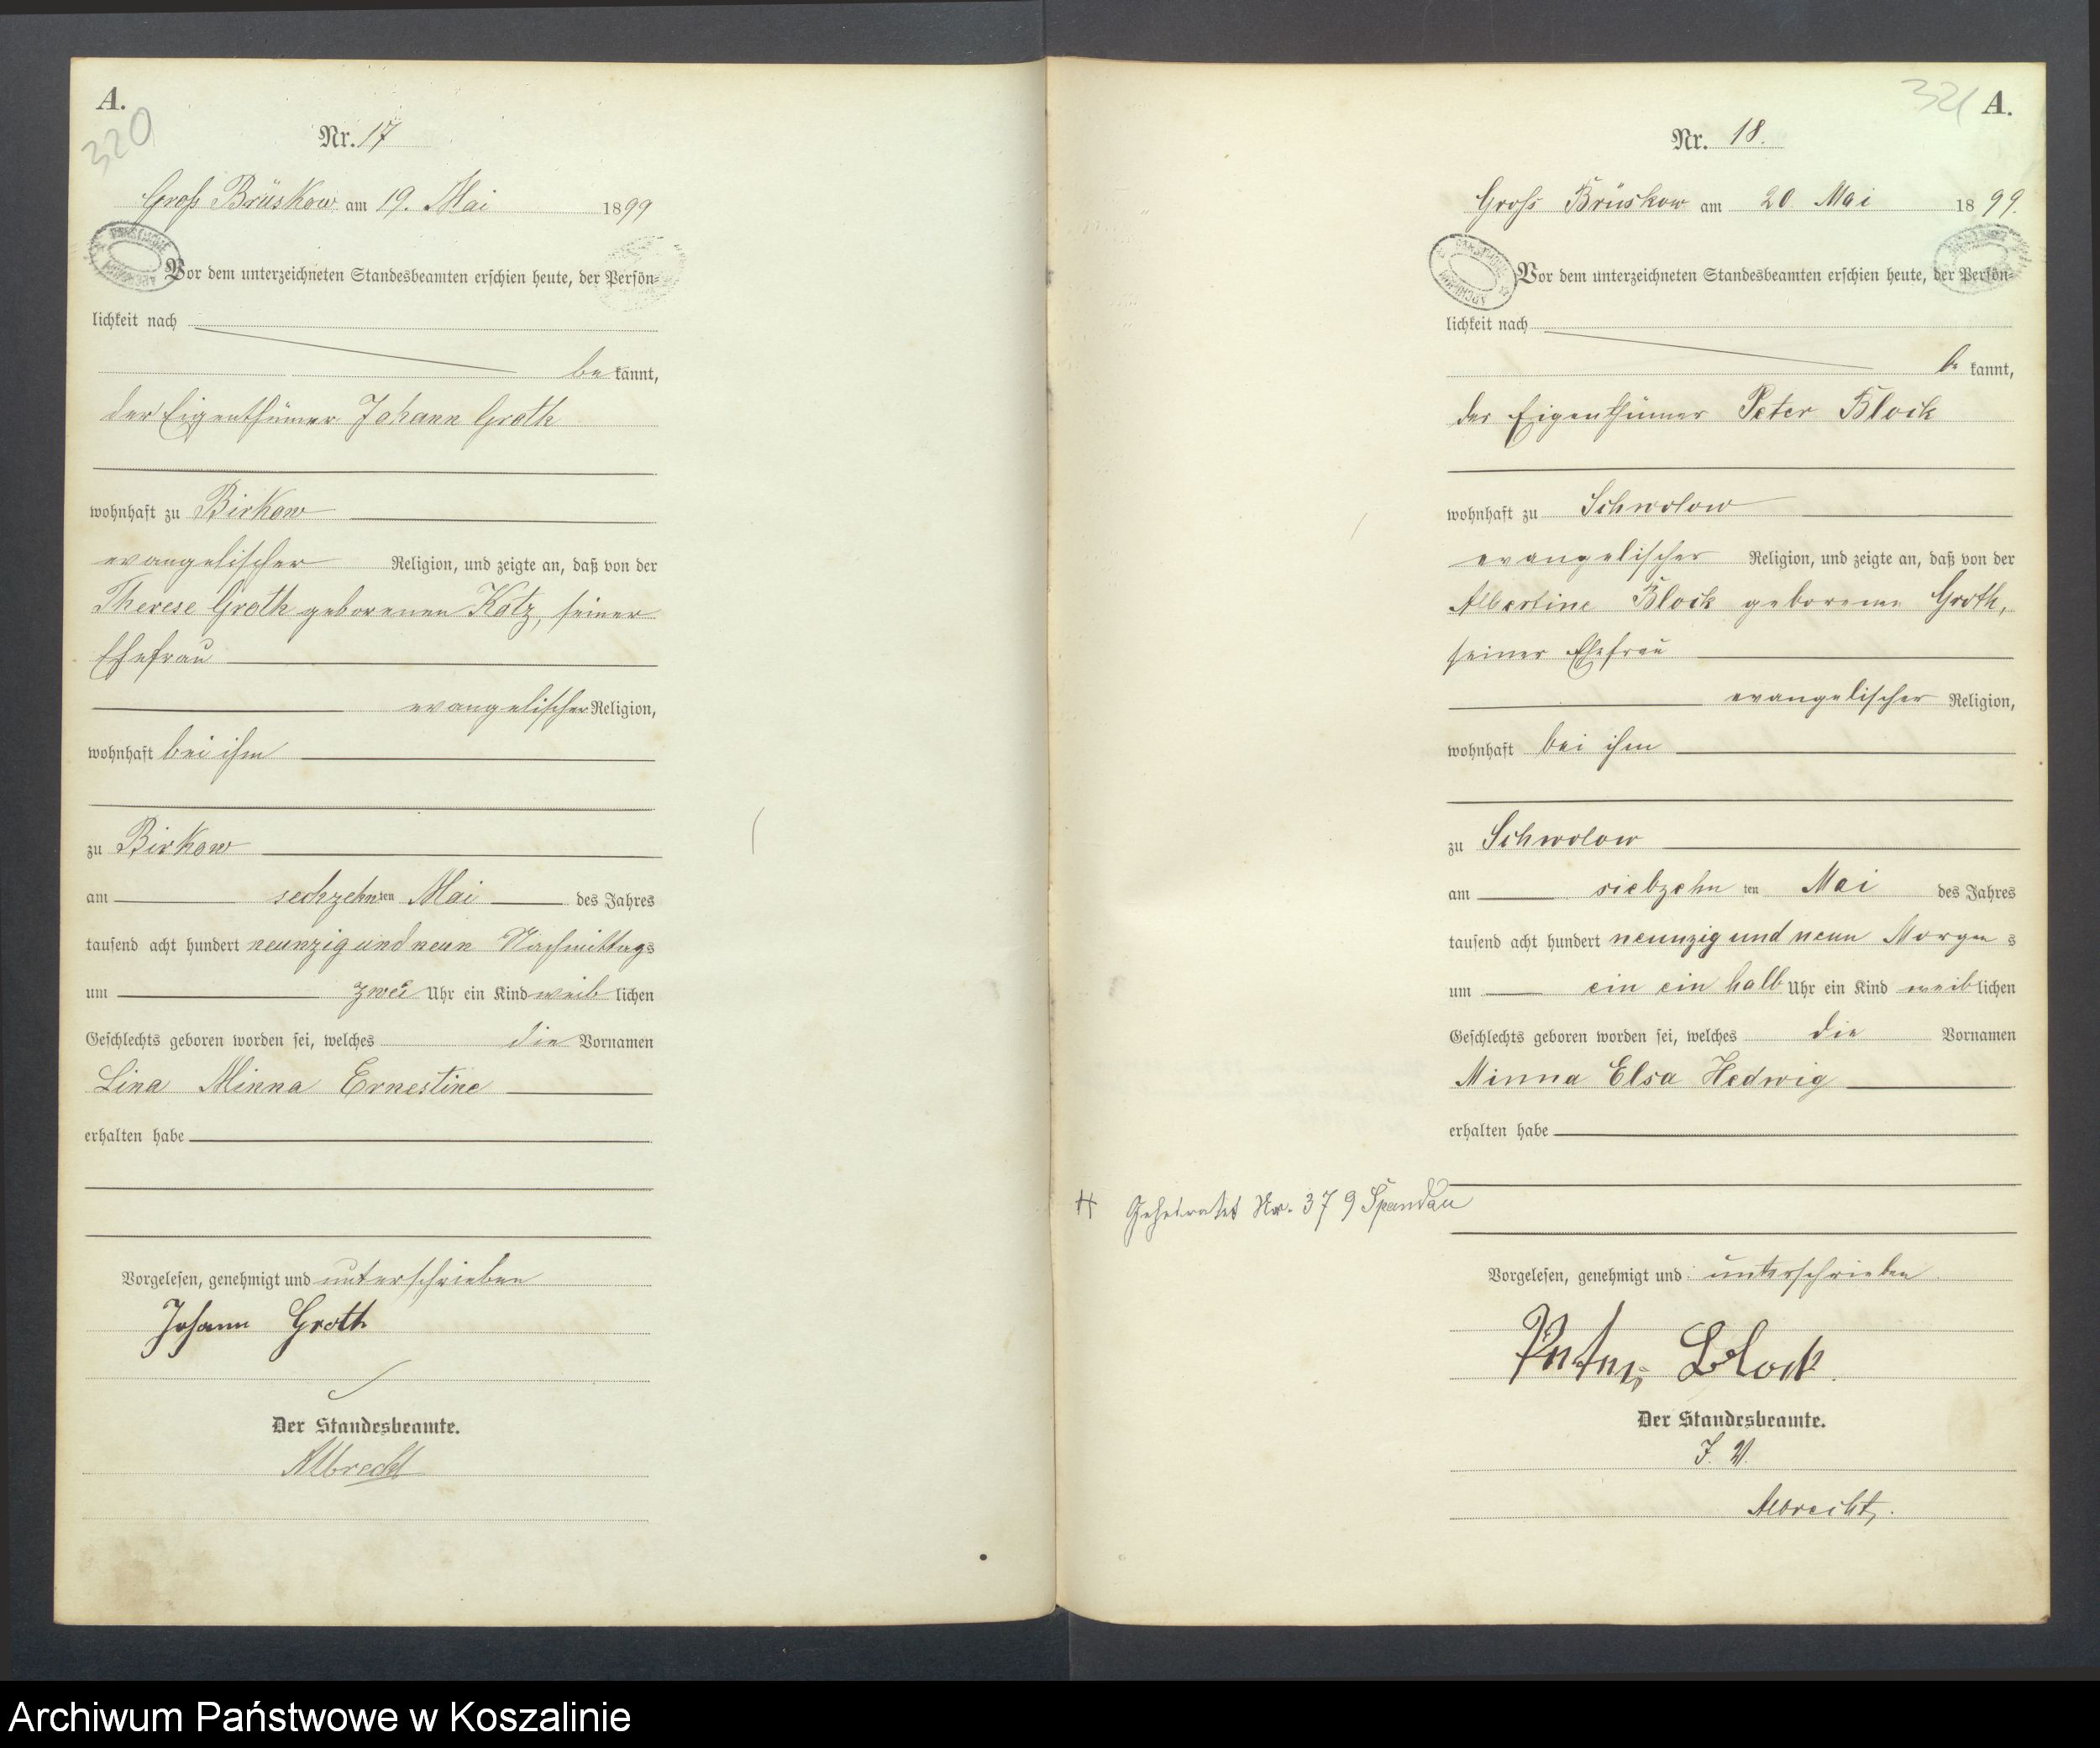 A.
320
Nr. 17
Groß Brüskow am 19. Mai 1899
Vor dem unterzeichneten Standesbeamten erschien heute, der Persön-
lichkeit nach
be kannt,
der Eigenthümer Johann Groth
wohnhaft zu Birkow
evangelischer Religion, und zeigte an, daß von der
Therese Groth geborenen Kotz, seiner
Ehefrau
evangelischer Religion,
wohnhaft bei ihm
zu Birkow
am sechzehn ten Mai des Jahres
tausend acht hundert neunzig und neun Nachmittags
um zwei Uhr ein Kind weib lichen
Geschlechts geboren worden sei, welches die Vornamen
Lina Minna Ernestine
erhalten habe
Vorgelesen, genehmigt und unterschrieben
Johann Groth
Der Standesbeamte.
Albrecht
321 A.
Nr. 18.
Gross Brüskow am 20 Mai 1899.
Vor dem unterzeichneten Standesbeamten erschien heute, der Persön-
lichkeit nach
be kannt,
der Eigenthümer Peter Block
wohnhaft zu Schwolow
evangelischer Religion, und zeigte an, daß von der
Albertine Block geborene Groth,
seiner Ehefrau
evangelischer Religion,
wohnhaft bei ihm
zu Schwolow
am siebzehn ten Mai des Jahres
tausend acht hundert neunzig und neun Morgen s
um ein ein halb Uhr ein Kind weib lichen
Geschlechts geboren worden sei, welches die Vornamen
Minna Elsa Hedwig
erhalten habe
Geheiratet Nr. 379 Spandau
Vorgelesen, genehmigt und unterschrieben.
Peter Block.
Der Standesbeamte.
J. V.
Albrecht.
Archiwum Państwowe w Koszalinie